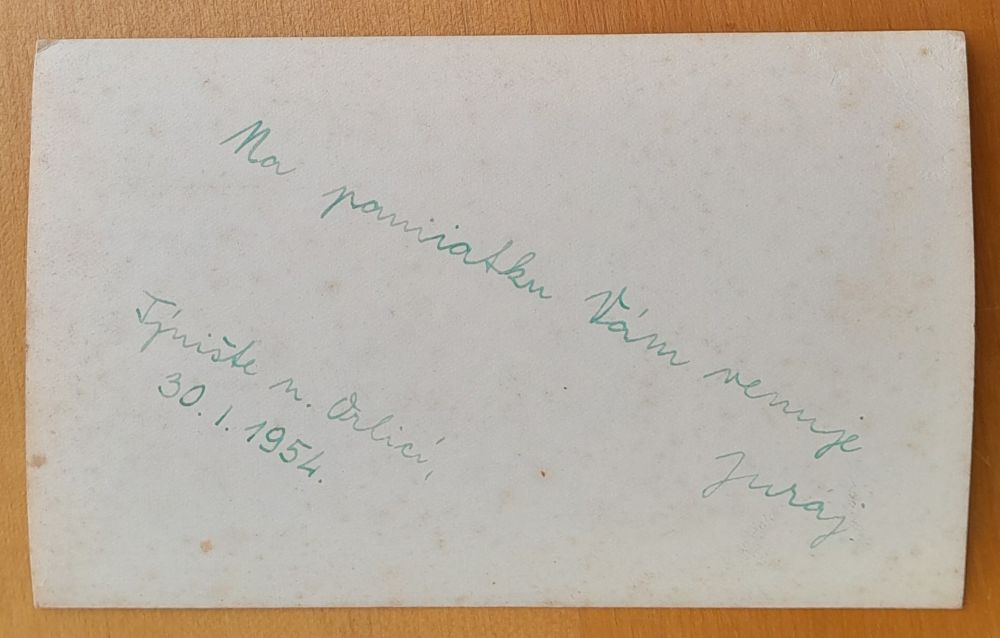 Na pamiatku Vám venuje
Juraj.
Týnište n. Orlicí,
30. 1. 1954.